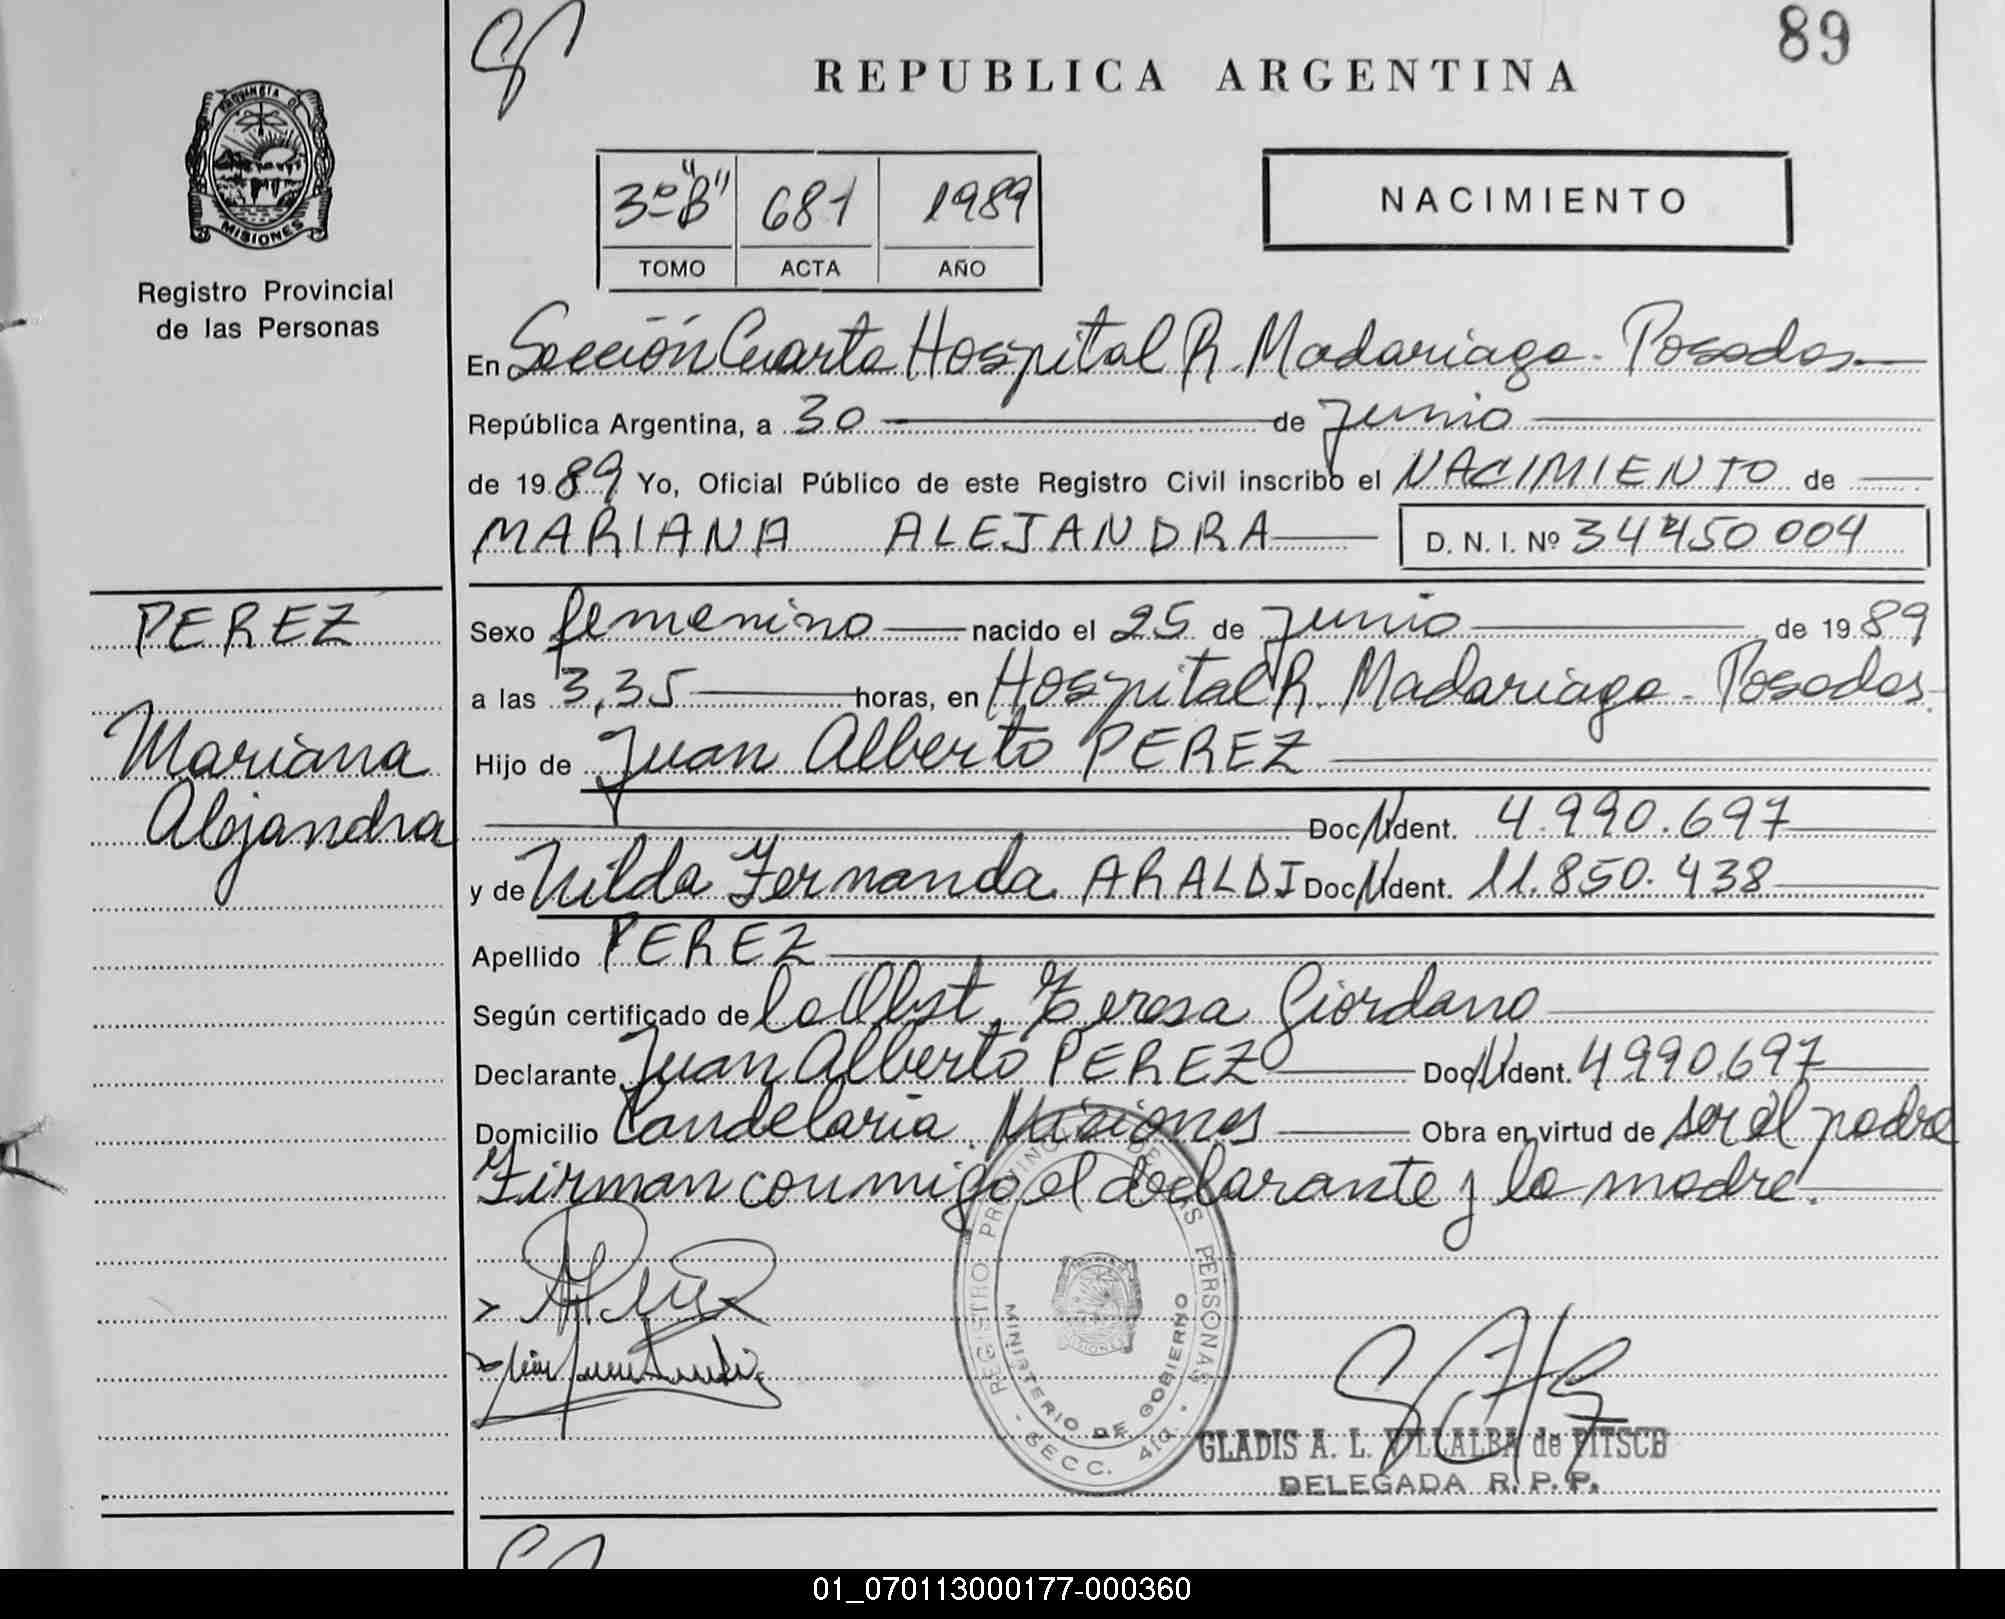 89
REPUBLICA ARGENTINA
PROVINCIA DE
MISIONES
Registro Provincial
de las Personas
3º "B" 681 1989
TOMO ACTA AÑO
NACIMIENTO
En Sección Cuarta Hospital R. Madariaga - Posadas
República Argentina, a 30 de Junio
de 1989 Yo, Oficial Público de este Registro Civil inscribo el NACIMIENTO de
MARIANA ALEJANDRA D. N. I. Nº 34450004
PEREZ
Mariana
Alejandra
Sexo femenino nacido el 25 de Junio de 1989
a las 3,35 horas, en Hospital R. Madariaga - Posadas.
Hijo de Juan Alberto PEREZ
Doc. Ident. 4.990.697
y de Nilda Fernanda ARALDI Doc. Ident. 11.850.438
Apellido PEREZ
Según certificado de la Obst. Teresa Giordano
Declarante Juan Alberto PEREZ Doc. Ident. 4990.697
Domicilio Candelaria. Misiones Obra en virtud de ser el padre
Firman conmigo el declarante y la madre.
REGISTRO PROVINCIAL DE LAS PERSONAS
MINISTERIO DE GOBIERNO
- SECC. 4ta. -
GLADIS A. L. VILLALBA de PITSCH
DELEGADA R. P. P.
01_070113000177-000360